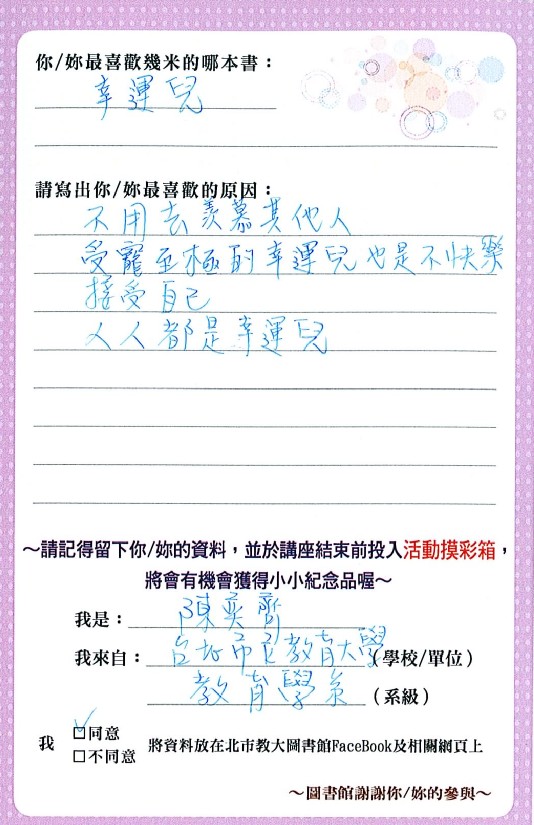 你/妳最喜歡幾米的哪本書：
幸運兒
請寫出你/妳最喜歡的原因：
不用去羨慕其他人
受寵至極的幸運兒也是不快樂
接受自己
人人都是幸運兒
～請記得留下你/妳的資料，並於講座結束前投入活動摸彩箱，
將會有機會獲得小小紀念品喔～
我是：陳奕齊
我來自：台北市立教育大學(學校/單位)
教育學系(系級)
我 ☑同意
□不同意 將資料放在北市教大圖書館FaceBook及相關網頁上
～圖書館謝謝你/妳的參與～